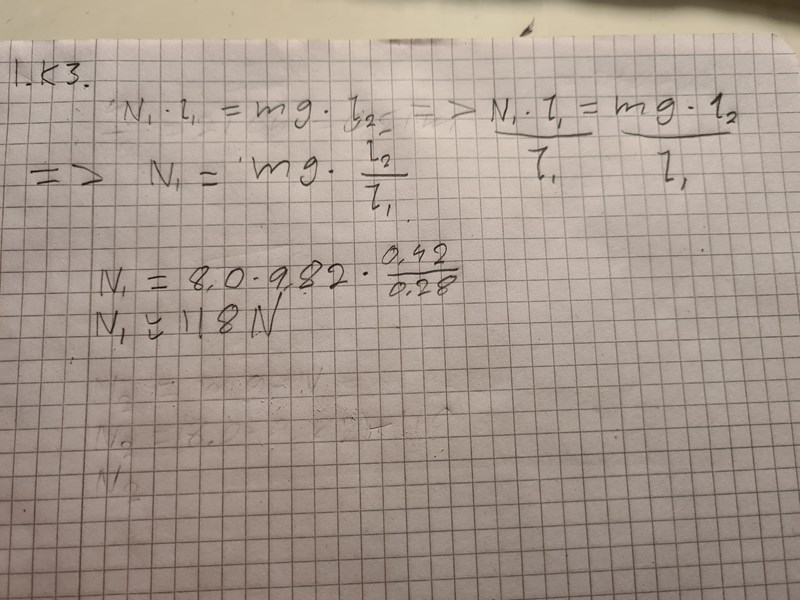 1.K3.
N₁ · l₁ = mg · l₂ => (N₁ · l₁)/l₁ = (mg · l₂)/l₁
=> N₁ = mg · l₂/l₁
N₁ = 8,0 · 9,82 · 0,42/0,28
N₁ ≈ 118 N